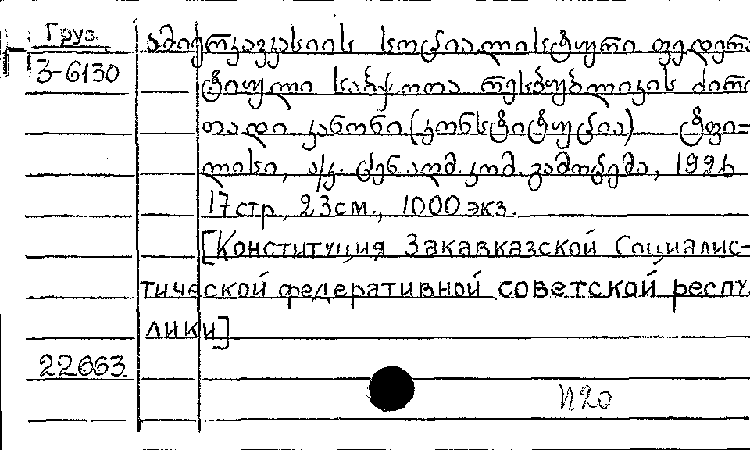 Груз.
3-6130
ამიერკავკასიის სოციალისტური ფედერა
ტიული საბჭოთა რესპუბლიკის ძირი
თადი კანონი (კონსტიტუცია) ტფი-
ლისი, ა/კ. ცენ. აღმ. კომ. გამოცემა, 1926
17 стр., 23 см., 1000 экз.
[Конституция Закавказской Социалис-
тической федеративной советской респу
лики]
22663
п20